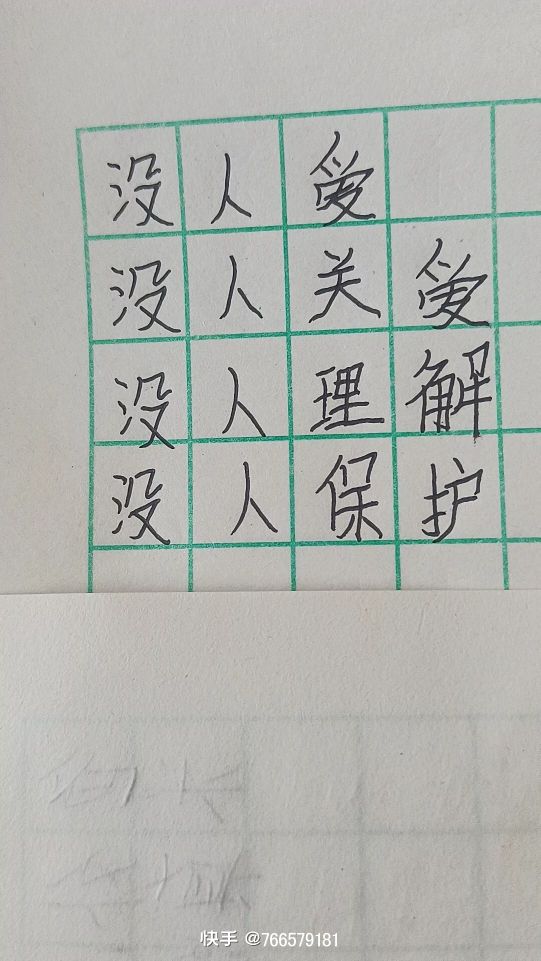 没人爱
没人关爱
没人理解
没人保护
快手 @766579181